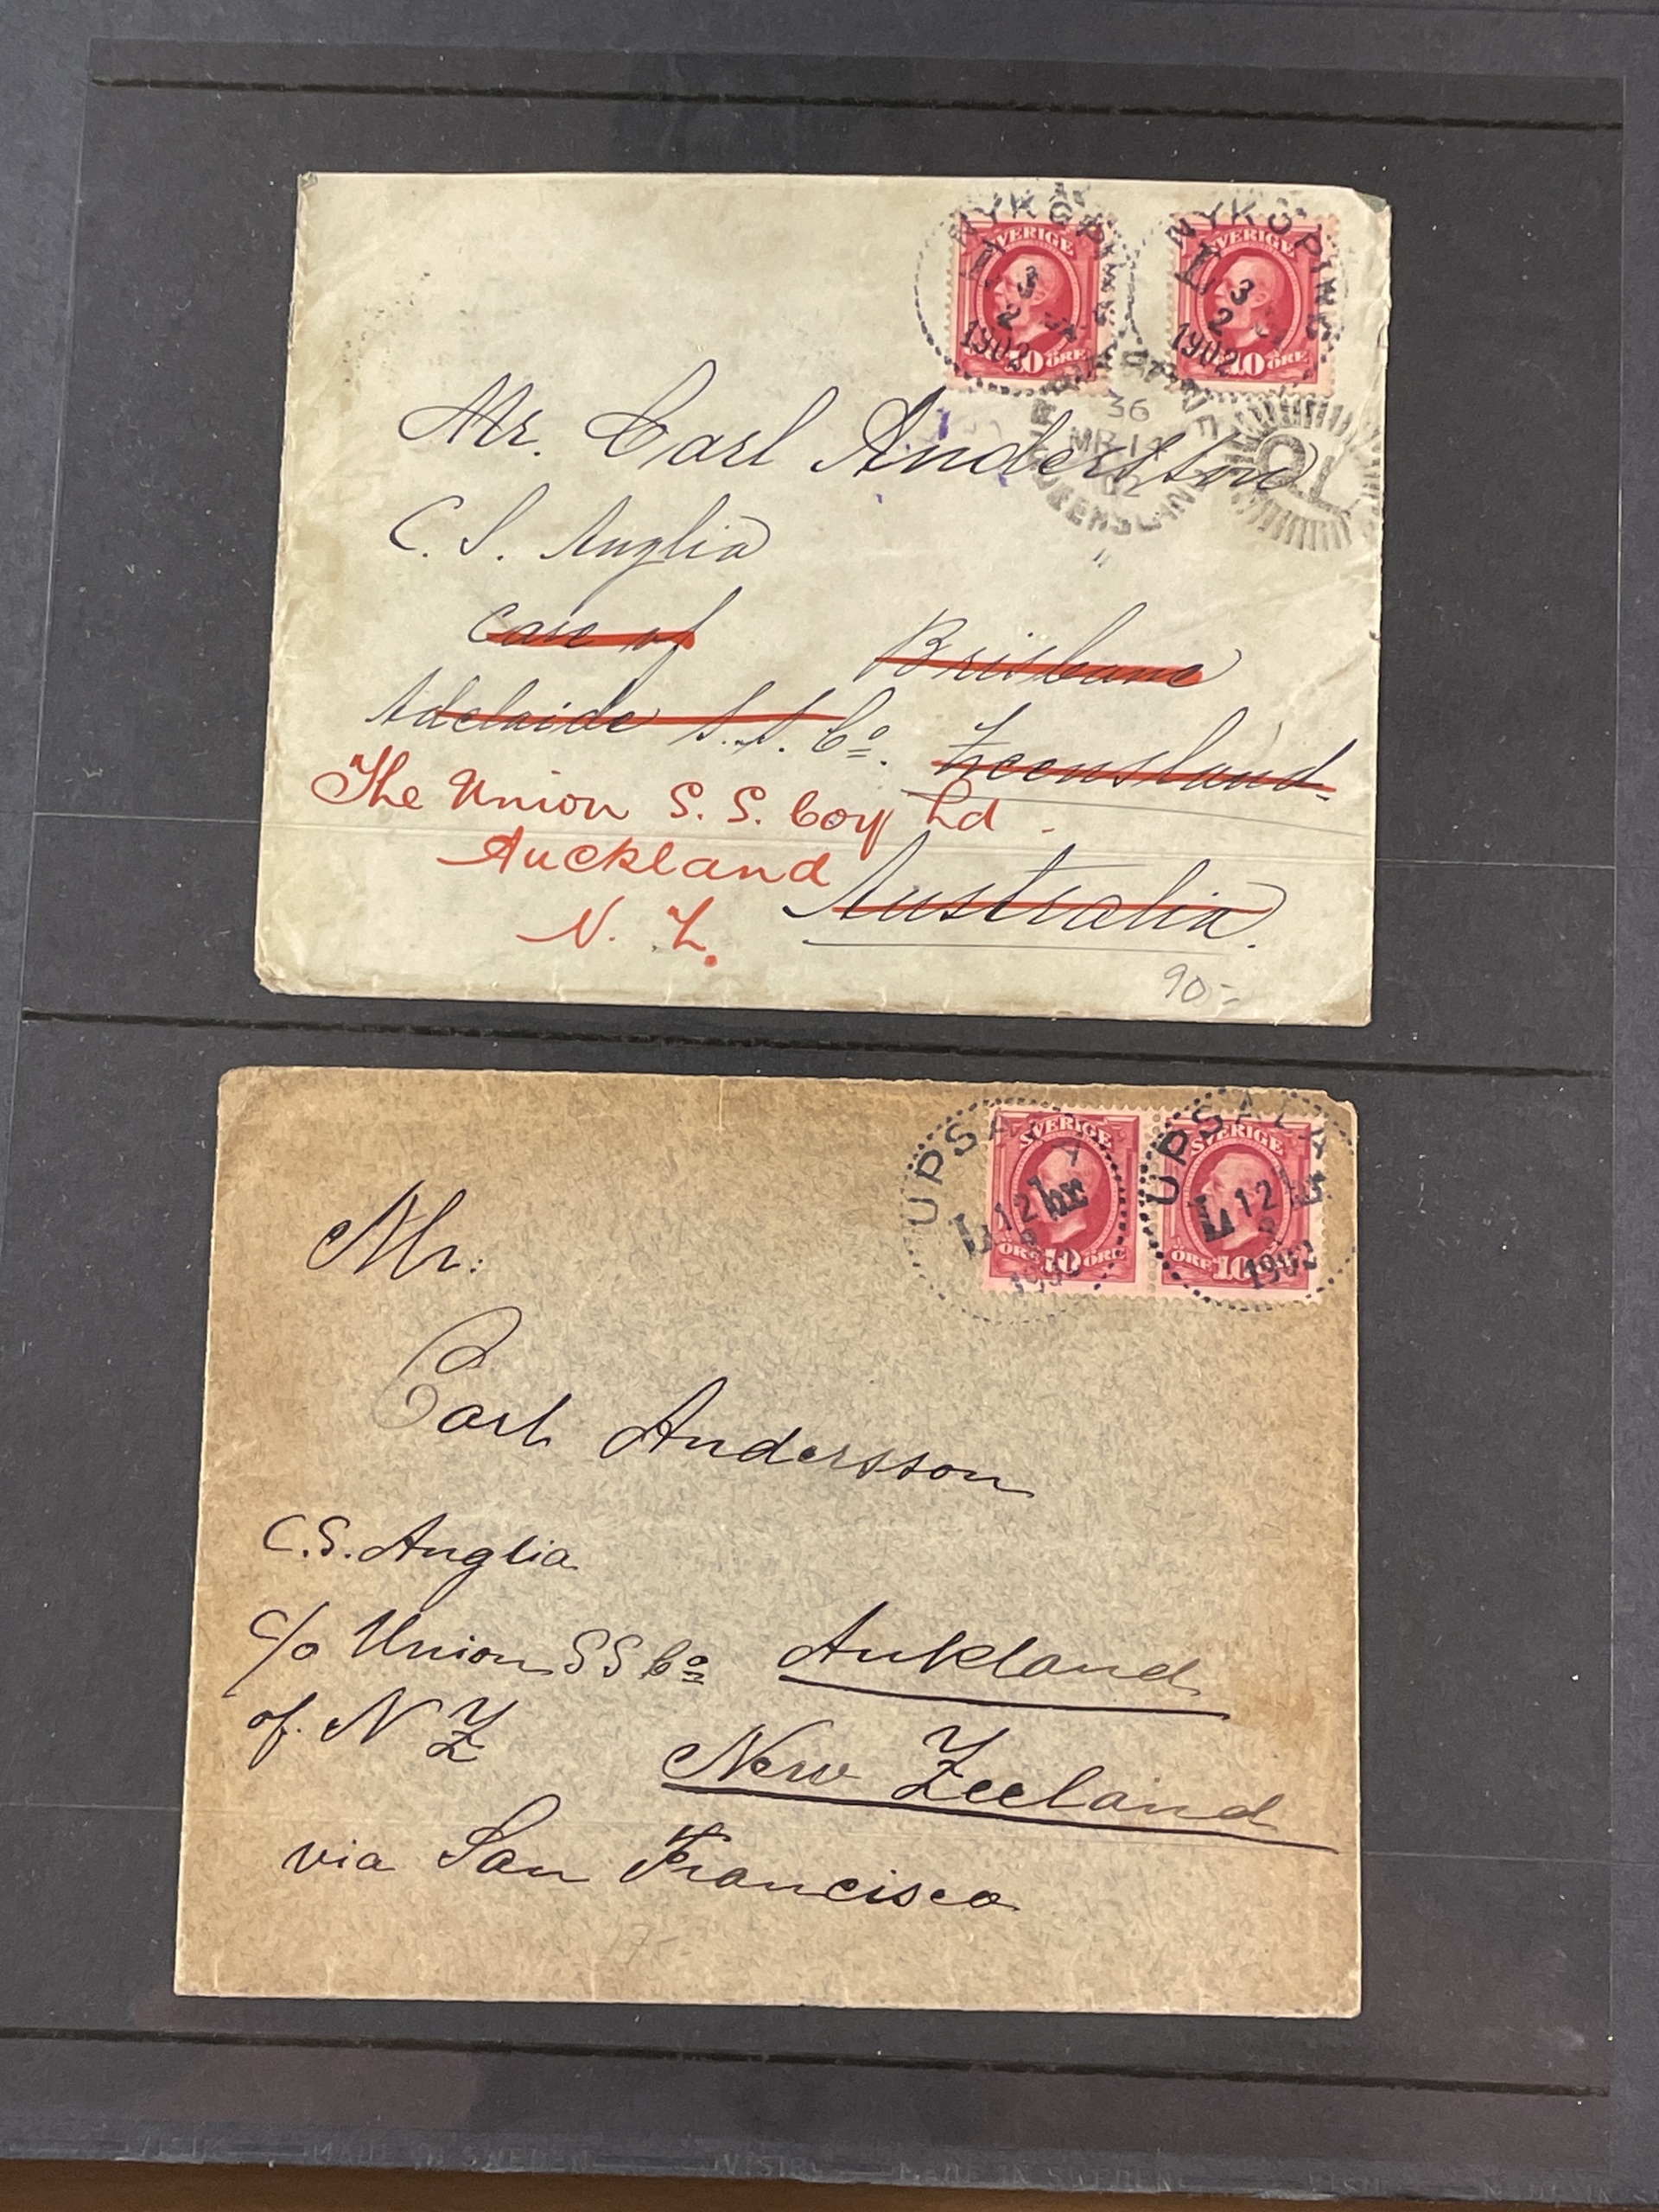 NYKÖPING
L 3
2
1902
SVERIGE
10 ÖRE
NYKÖPING
L 3
2
1902
SVERIGE
10 ÖRE
36
MR 1
02
QUEENSLAND
QL
Mr. Carl Andersson
C. S. Anglia
Care of Brisbane
Adelaide S. S. Co. Queensland
The Union S. S. Coy Ld
Auckland
N. Z.
Australia.
90:-
UPSALA
L 12
1902
SVERIGE
ÖRE 10 ÖRE
UPSALA
L 12
1902
SVERIGE
ÖRE 10
Mr:
Carl Andersson
C.S. Anglia
c/o Union SS Co Aukland
of. N Z
New Zeeland
via San Francisco
MADE IN SWEDEN
MADE IN SWEDEN